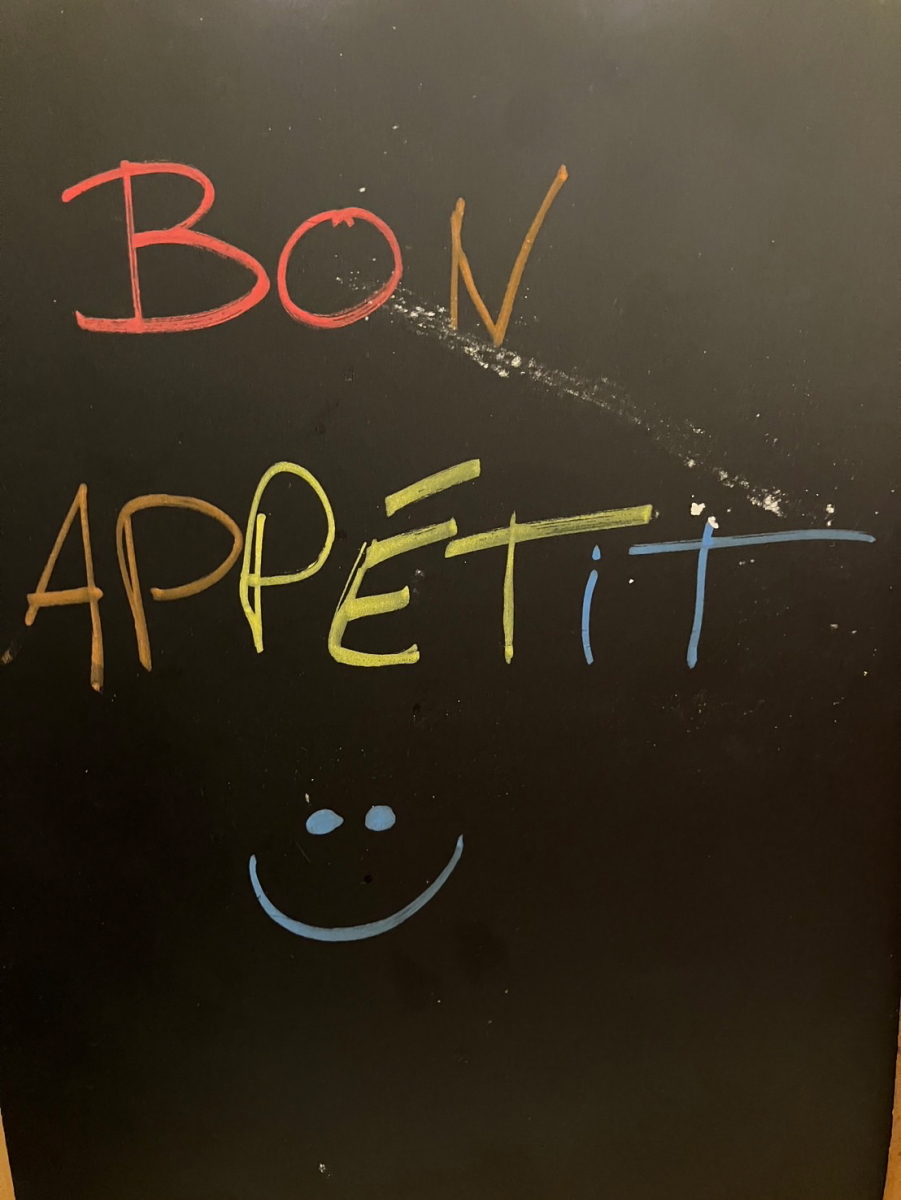 BON
APPÉTiT